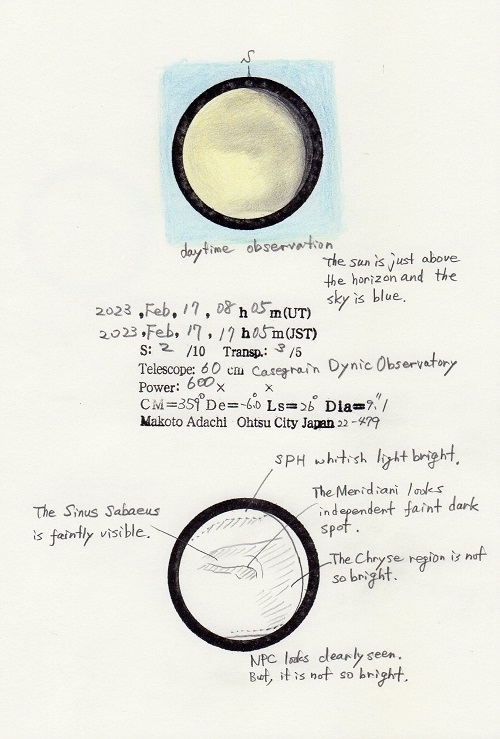 S
daytime observation
the sun is just above
the horizon and the
sky is blue.
2023, Feb, 17, 08 h 05 m (UT)
2023, Feb, 17, 17 h 05 m (JST)
S: 2 /10 Transp.: 3 /5
Telescope: 60 cm Casegrain Dynic Observatory
Power: 600 × ×
CM=359° De=-6.0 Ls=26° Dia=9."1
Makoto Adachi Ohtsu City Japan 22-479
SPH whitish light bright.
The Meridiani looks
independent faint dark
spot.
The Sinus Sabaeus
is faintly visible.
The Chryse region is not
so bright.
NPC looks clearly seen.
But, it is not so bright.